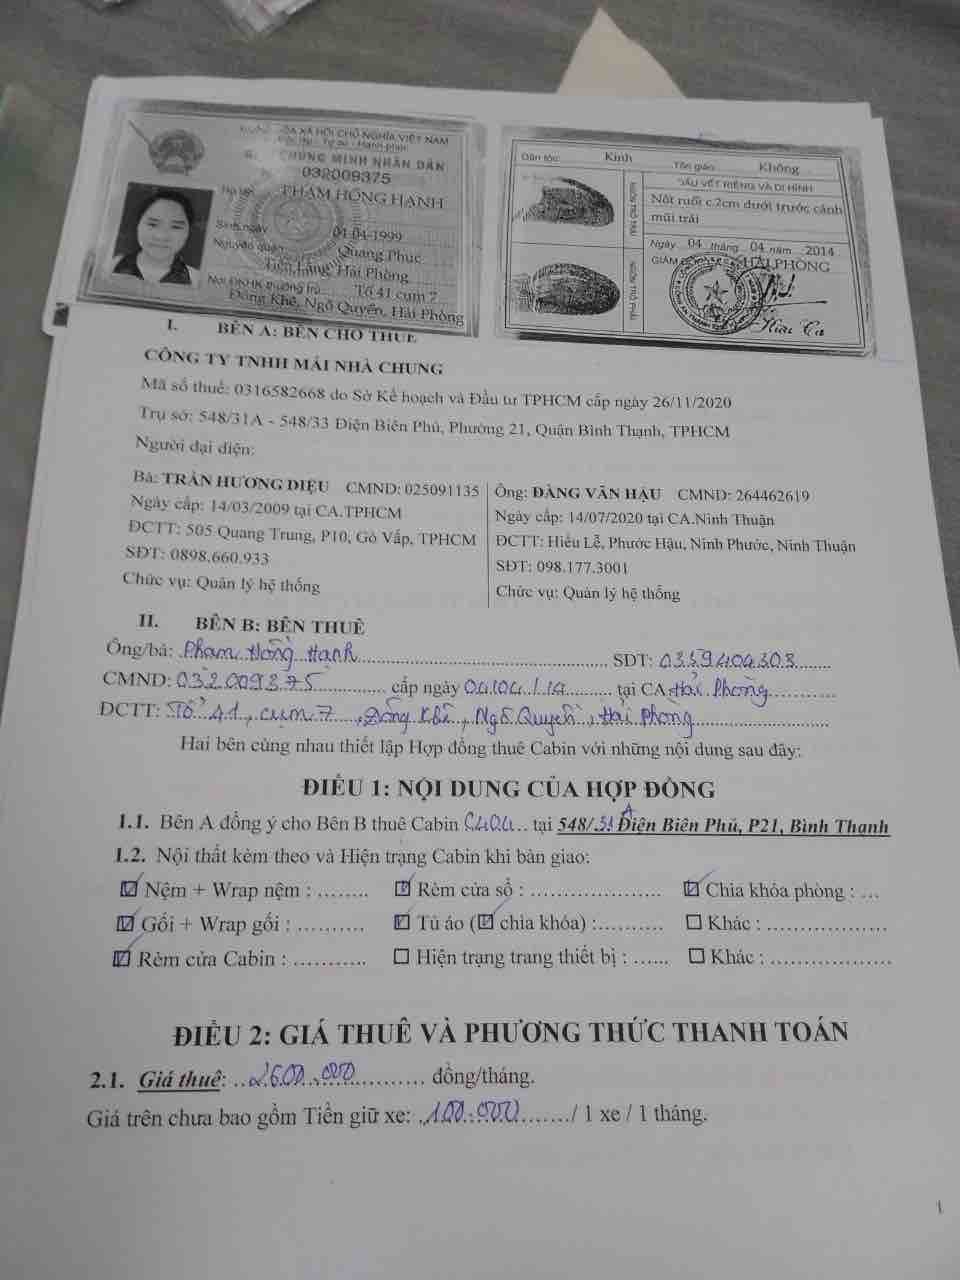 CỘNG HÒA XÃ HỘI CHỦ NGHĨA VIỆT NAM
Độc lập - Tự do - Hạnh phúc
CHỨNG MINH NHÂN DÂN
032009375
Họ tên PHẠM HỒNG HẠNH
Sinh ngày 01-04-1999
Nguyên quán Quang Phục
Tiên Lãng, Hải Phòng
Nơi ĐKHK thường trú Tổ 41 cụm 7
Đông Khê, Ngô Quyền, Hải Phòng
Dân tộc: Kinh Tôn giáo: Không
DẤU VẾT RIÊNG VÀ DỊ HÌNH
NGÓN TRỎ TRÁI
Nốt ruồi c.2cm dưới trước cánh
mũi trái
NGÓN TRỎ PHẢI
Ngày 04 tháng 04 năm 2014
GIÁM ĐỐC CA HẢI PHÒNG
I. BÊN A: BÊN CHO THUÊ
CÔNG TY TNHH MÁI NHÀ CHUNG
Mã số thuế: 0316582668 do Sở Kế hoạch và Đầu tư TPHCM cấp ngày 26/11/2020
Trụ sở: 548/31A - 548/33 Điện Biên Phủ, Phường 21, Quận Bình Thạnh, TPHCM
Người đại diện:
Bà: TRẦN HƯƠNG DIỆU CMND: 025091135
Ngày cấp: 14/03/2009 tại CA.TPHCM
ĐCTT: 505 Quang Trung, P10, Gò Vấp, TPHCM
SĐT: 0898.660.933
Chức vụ: Quản lý hệ thống
Ông: ĐÀNG VĂN HẬU CMND: 264462619
Ngày cấp: 14/07/2020 tại CA.Ninh Thuận
ĐCTT: Hiếu Lễ, Phước Hậu, Ninh Phước, Ninh Thuận
SĐT: 098.177.3001
Chức vụ: Quản lý hệ thống
II. BÊN B: BÊN THUÊ
Ông/bà: Phạm Hồng Hạnh SĐT: 0339404303
CMND: 032009375 cấp ngày 04/04/14 tại CA Hải Phòng
ĐCTT: Tổ 41, cụm 7, Đông Khê, Ngô Quyền, Hải Phòng
Hai bên cùng nhau thiết lập Hợp đồng thuê Cabin với những nội dung sau đây:
ĐIỀU 1: NỘI DUNG CỦA HỢP ĐỒNG
1.1. Bên A đồng ý cho Bên B thuê Cabin C404 tại 548/31A Điện Biên Phủ, P21, Bình Thạnh
1.2. Nội thất kèm theo và Hiện trạng Cabin khi bàn giao:
☑ Nệm + Wrap nệm : ........ ☑ Rèm cửa sổ : .................... ☑ Chìa khóa phòng : ...
☑ Gối + Wrap gối : .......... ☑ Tủ áo (☑ chìa khóa) :.......... ☐ Khác : ..................
☑ Rèm cửa Cabin : ........... ☐ Hiện trạng trang thiết bị : ...... ☐ Khác : ..................
ĐIỀU 2: GIÁ THUÊ VÀ PHƯƠNG THỨC THANH TOÁN
2.1. Giá thuê: 2.600.000 đồng/tháng.
Giá trên chưa bao gồm Tiền giữ xe: 100.000 / 1 xe / 1 tháng.
1